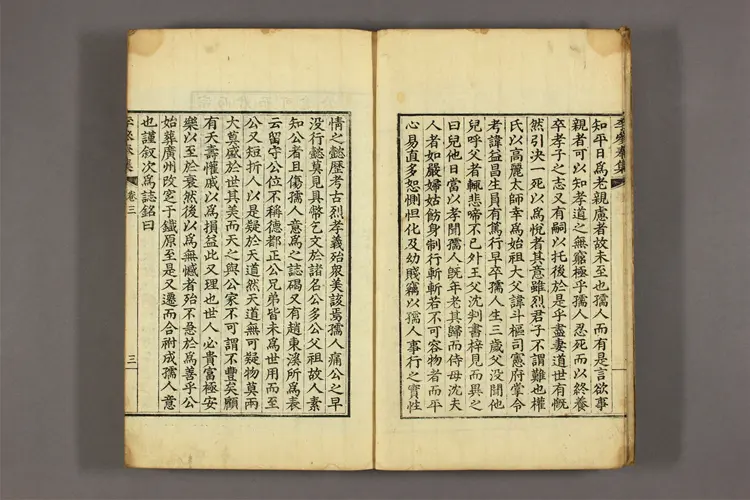 知平日爲老親慮者故未至也孺人而有是言欲事
親者可以知孝道之無窮極乎孺人忍死而以終養
卒孝子之志又有嗣以托後於是乎盡妻道世有慨
然引决一死以爲悅者其意雖烈君子不謂難也權
氏以高麗太師幸爲始祖大父諱斗樞司憲府掌令
考諱益昌生員有篤行早卒孺人生三歲父沒聞他
兒呼父者輒悲啼不已外王父沈判書梓見而異之
曰兒他日當以孝聞孺人旣年老其歸而侍母沈夫
人者如嚴婦姑飭身制行斬斬若不可容物者而平
心易直多恕惻怛化及幼賤竊以孺人事行之實性
情之懿歷考古烈孝義殆衆美該焉孺人痛公之早
沒行懿莫見具幣乞文於諸名公多公父祖故人素
知公者且傷孺人意爲之誌碣又有趙東溪所爲表
云留守公位不稱德都正公兄弟皆未爲世用而至
公又短折人以是疑於天道然天道無可疑物莫兩
大莫盛於世其美而天之與公家不可謂不豐矣顧
有夭壽懽戚以爲損益此又理也世人必貴富極安
樂以至於衰然後以爲無憾者殆不悬於爲善乎公
始葬廣州改窆于鐵原至是又遷而合祔成孺人意
也謹叙次爲誌銘曰
卷三
三